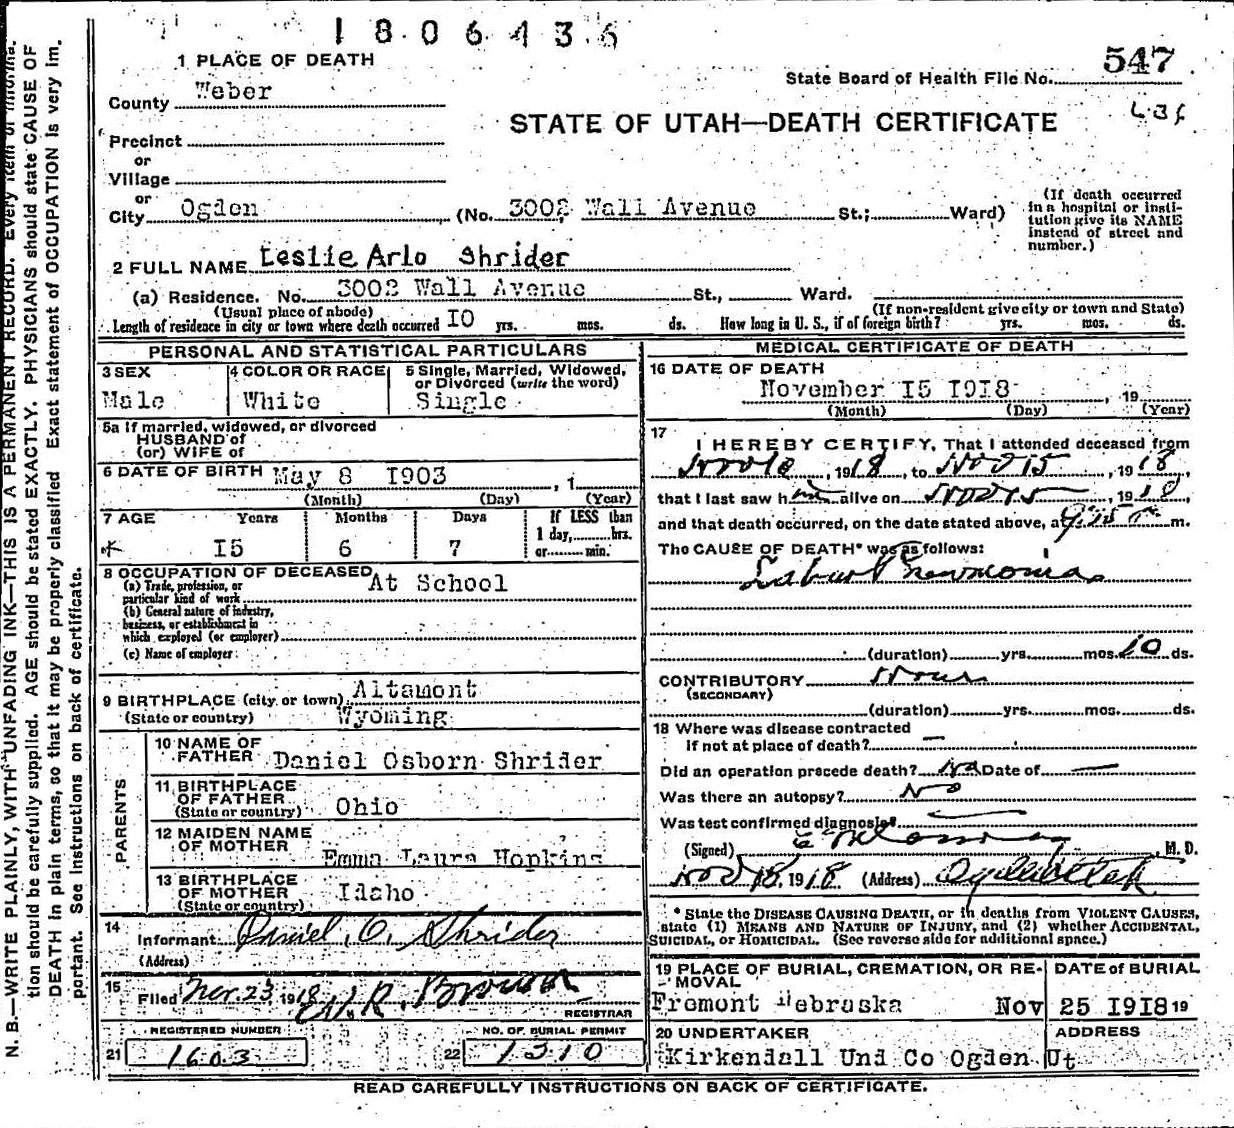 1806436
1 PLACE OF DEATH
State Board of Health File No. 547
County Weber
STATE OF UTAH—DEATH CERTIFICATE
Precinct
or
Village
or
City Ogden (No. 3002 Wall Avenue St.; Ward)
(If death occurred
in a hospital or insti-
tution give its NAME
instead of street and
number.)
2 FULL NAME Leslie Arlo Shrider
(a) Residence. No. 3002 Wall Avenue St., Ward.
(Usual place of abode) (If non-resident give city or town and State)
Length of residence in city or town where death occurred 10 yrs. mos. ds. How long in U. S., if of foreign birth? yrs. mos. ds.
PERSONAL AND STATISTICAL PARTICULARS
3 SEX 4 COLOR OR RACE 5 Single, Married, Widowed,
or Divorced (write the word)
Male White Single
5a If married, widowed, or divorced
HUSBAND of
(or) WIFE of
6 DATE OF BIRTH May 8 1903 , 1
(Month) (Day) (Year)
7 AGE Years Months Days If LESS than
1 day, hrs.
or min.
15 6 7
8 OCCUPATION OF DECEASED At School
(a) Trade, profession, or
particular kind of work
(b) General nature of industry,
business, or establishment in
which employed (or employer)
(c) Name of employer
9 BIRTHPLACE (city or town) Altamont
(State or country) Wyoming
PARENTS
10 NAME OF
FATHER Daniel Osborn Shrider
11 BIRTHPLACE
OF FATHER
(State or country) Ohio
12 MAIDEN NAME
OF MOTHER
Emma Laura Hopkins
13 BIRTHPLACE
OF MOTHER Idaho
(State or country)
14
Informant Daniel O. Shrider
(Address)
15
Filed Nov. 23, 1918 Brown
REGISTRAR
REGISTERED NUMBER NO. OF BURIAL PERMIT
21 1603 22 1310
MEDICAL CERTIFICATE OF DEATH
16 DATE OF DEATH
November 15 1918 , 19
(Month) (Day) (Year)
17
I HEREBY CERTIFY, That I attended deceased from
, 1918, to Nov 15, 1918,
that I last saw him alive on Nov 15, 1918,
and that death occurred, on the date stated above, at m.
The CAUSE OF DEATH* was as follows:
Lobar Pneumonia
(duration) yrs. mos. 10 ds.
CONTRIBUTORY
(SECONDARY)
(duration) yrs. mos. ds.
18 Where was disease contracted
if not at place of death? —
Did an operation precede death? No Date of —
Was there an autopsy? No
Was test confirmed diagnosis? —
(Signed) , M. D.
Nov 18, 1918 (Address) Ogden Utah
* State the DISEASE CAUSING DEATH, or in deaths from VIOLENT CAUSES,
state (1) MEANS AND NATURE OF INJURY, and (2) whether ACCIDENTAL,
SUICIDAL, or HOMICIDAL. (See reverse side for additional space.)
19 PLACE OF BURIAL, CREMATION, OR RE-
MOVAL
DATE of BURIAL
Fremont Nebraska Nov 25 1918 19
20 UNDERTAKER ADDRESS
Kirkendall Und Co Ogden Ut
READ CAREFULLY INSTRUCTIONS ON BACK OF CERTIFICATE.
N. B.—WRITE PLAINLY, WITH UNFADING INK—THIS IS A PERMANENT RECORD. Every item of informa-
tion should be carefully supplied. AGE should be stated EXACTLY. PHYSICIANS should state CAUSE OF
DEATH in plain terms, so that it may be properly classified. Exact statement of OCCUPATION is very im-
portant. See instructions on back of certificate.